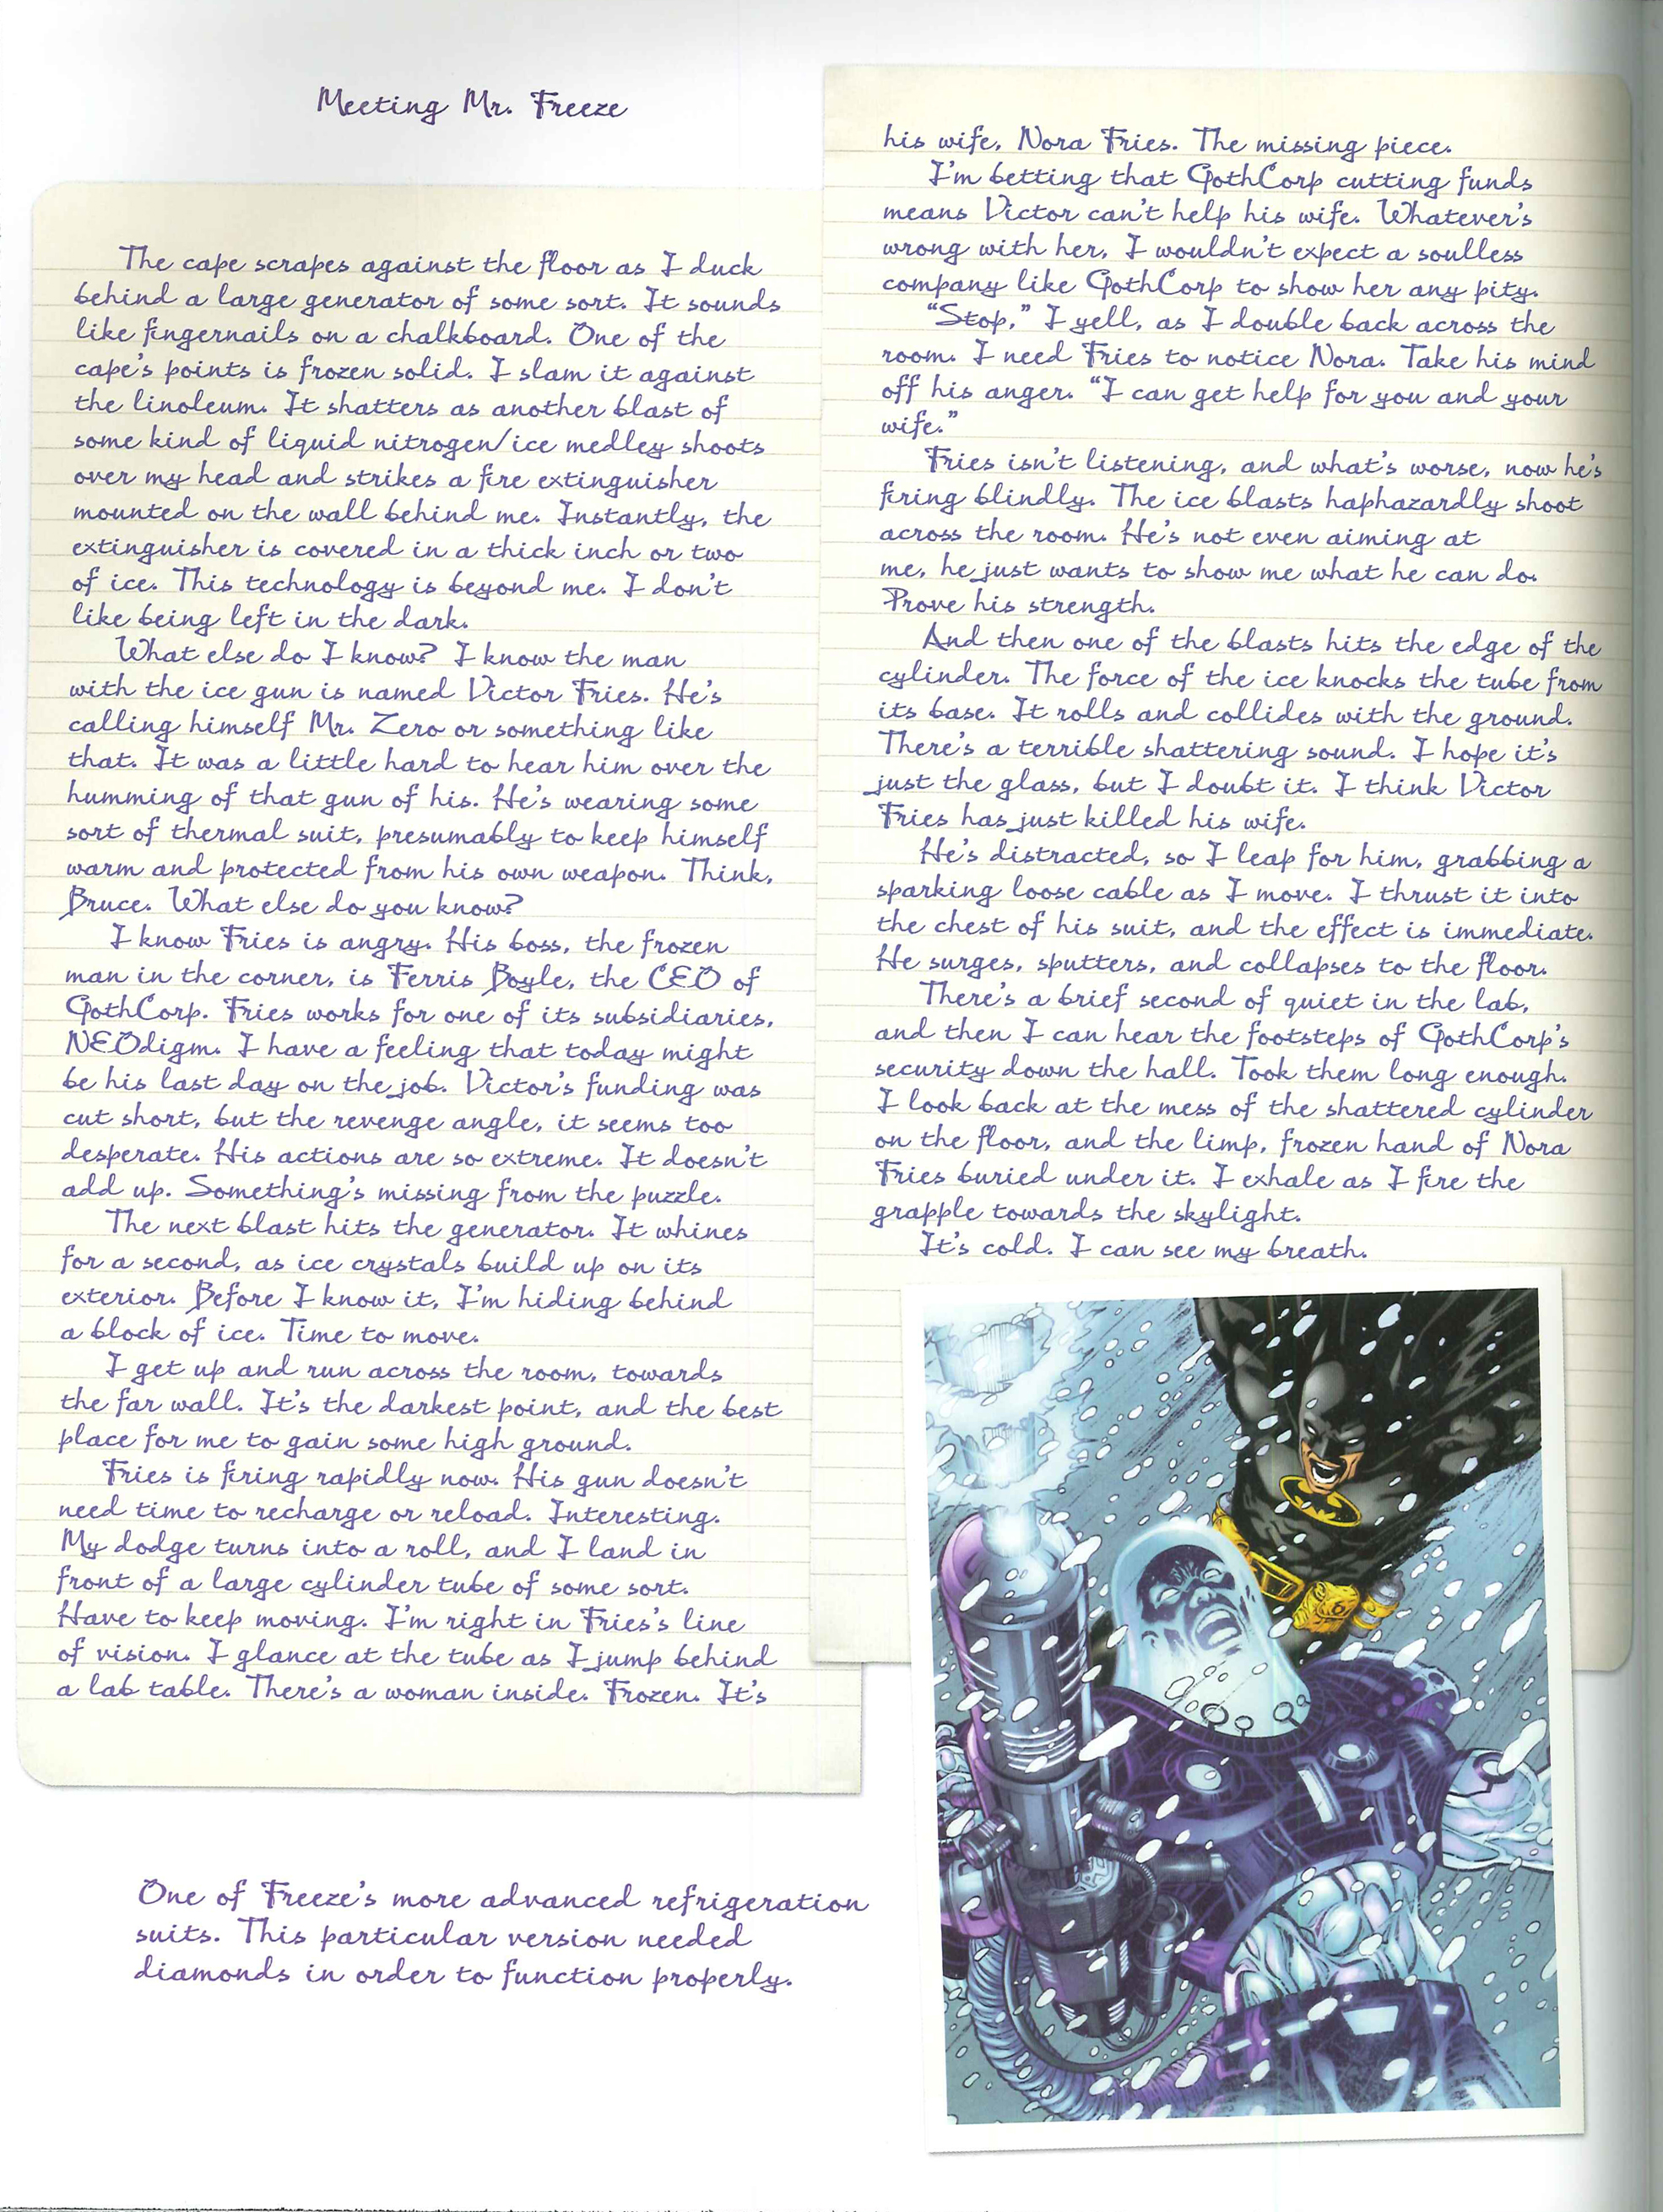 Meeting Mr. Freeze
The cape scrapes against the floor as I duck
behind a large generator of some sort. It sounds
like fingernails on a chalkboard. One of the
cape's points is frozen solid. I slam it against
the linoleum. It shatters as another blast of
some kind of liquid nitrogen/ice medley shoots
over my head and strikes a fire extinguisher
mounted on the wall behind me. Instantly, the
extinguisher is covered in a thick inch or two
of ice. This technology is beyond me. I don't
like being left in the dark.
What else do I know? I know the man
with the ice gun is named Victor Fries. He's
calling himself Mr. Zero or something like
that. It was a little hard to hear him over the
humming of that gun of his. He's wearing some
sort of thermal suit, presumably to keep himself
warm and protected from his own weapon. Think,
Bruce. What else do you know?
I know Fries is angry. His boss, the frozen
man in the corner, is Ferris Boyle, the CEO of
GothCorp. Fries works for one of its subsidiaries,
NEOdigm. I have a feeling that today might
be his last day on the job. Victor's funding was
cut short, but the revenge angle, it seems too
desperate. His actions are so extreme. It doesn't
add up. Something's missing from the puzzle.
The next blast hits the generator. It whines
for a second, as ice crystals build up on its
exterior. Before I know it, I'm hiding behind
a block of ice. Time to move.
I get up and run across the room, towards
the far wall. It's the darkest point, and the best
place for me to gain some high ground.
Fries is firing rapidly now. His gun doesn't
need time to recharge or reload. Interesting.
My dodge turns into a roll, and I land in
front of a large cylinder tube of some sort.
Have to keep moving. I'm right in Fries's line
of vision. I glance at the tube as I jump behind
a lab table. There's a woman inside. Frozen. It's
his wife, Nora Fries. The missing piece.
I'm betting that GothCorp cutting funds
means Victor can't help his wife. Whatever's
wrong with her, I wouldn't expect a soulless
company like GothCorp to show her any pity.
"Stop," I yell, as I double back across the
room. I need Fries to notice Nora. Take his mind
off his anger. "I can get help for you and your
wife."
Fries isn't listening, and what's worse, now he's
firing blindly. The ice blasts haphazardly shoot
across the room. He's not even aiming at
me, he just wants to show me what he can do.
Prove his strength.
And then one of the blasts hits the edge of the
cylinder. The force of the ice knocks the tube from
its base. It rolls and collides with the ground.
There's a terrible shattering sound. I hope it's
just the glass, but I doubt it. I think Victor
Fries has just killed his wife.
He's distracted, so I leap for him, grabbing a
sparking loose cable as I move. I thrust it into
the chest of his suit, and the effect is immediate.
He surges, sputters, and collapses to the floor.
There's a brief second of quiet in the lab,
and then I can hear the footsteps of GothCorp's
security down the hall. Took them long enough.
I look back at the mess of the shattered cylinder
on the floor, and the limp, frozen hand of Nora
Fries buried under it. I exhale as I fire the
grapple towards the skylight.
It's cold. I can see my breath.
One of Freeze's more advanced refrigeration
suits. This particular version needed
diamonds in order to function properly.